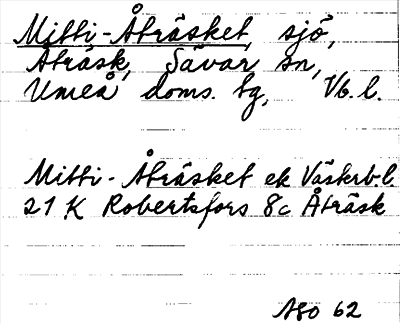 Mitti-Åträsket, sjö,
Åträsk, Sävar sn,
Umeå doms. tg, Vb. l.
Mitti-Åträsket ek Västerb. l.
21 K Robertsfors 8c Åträsk
ASO 62